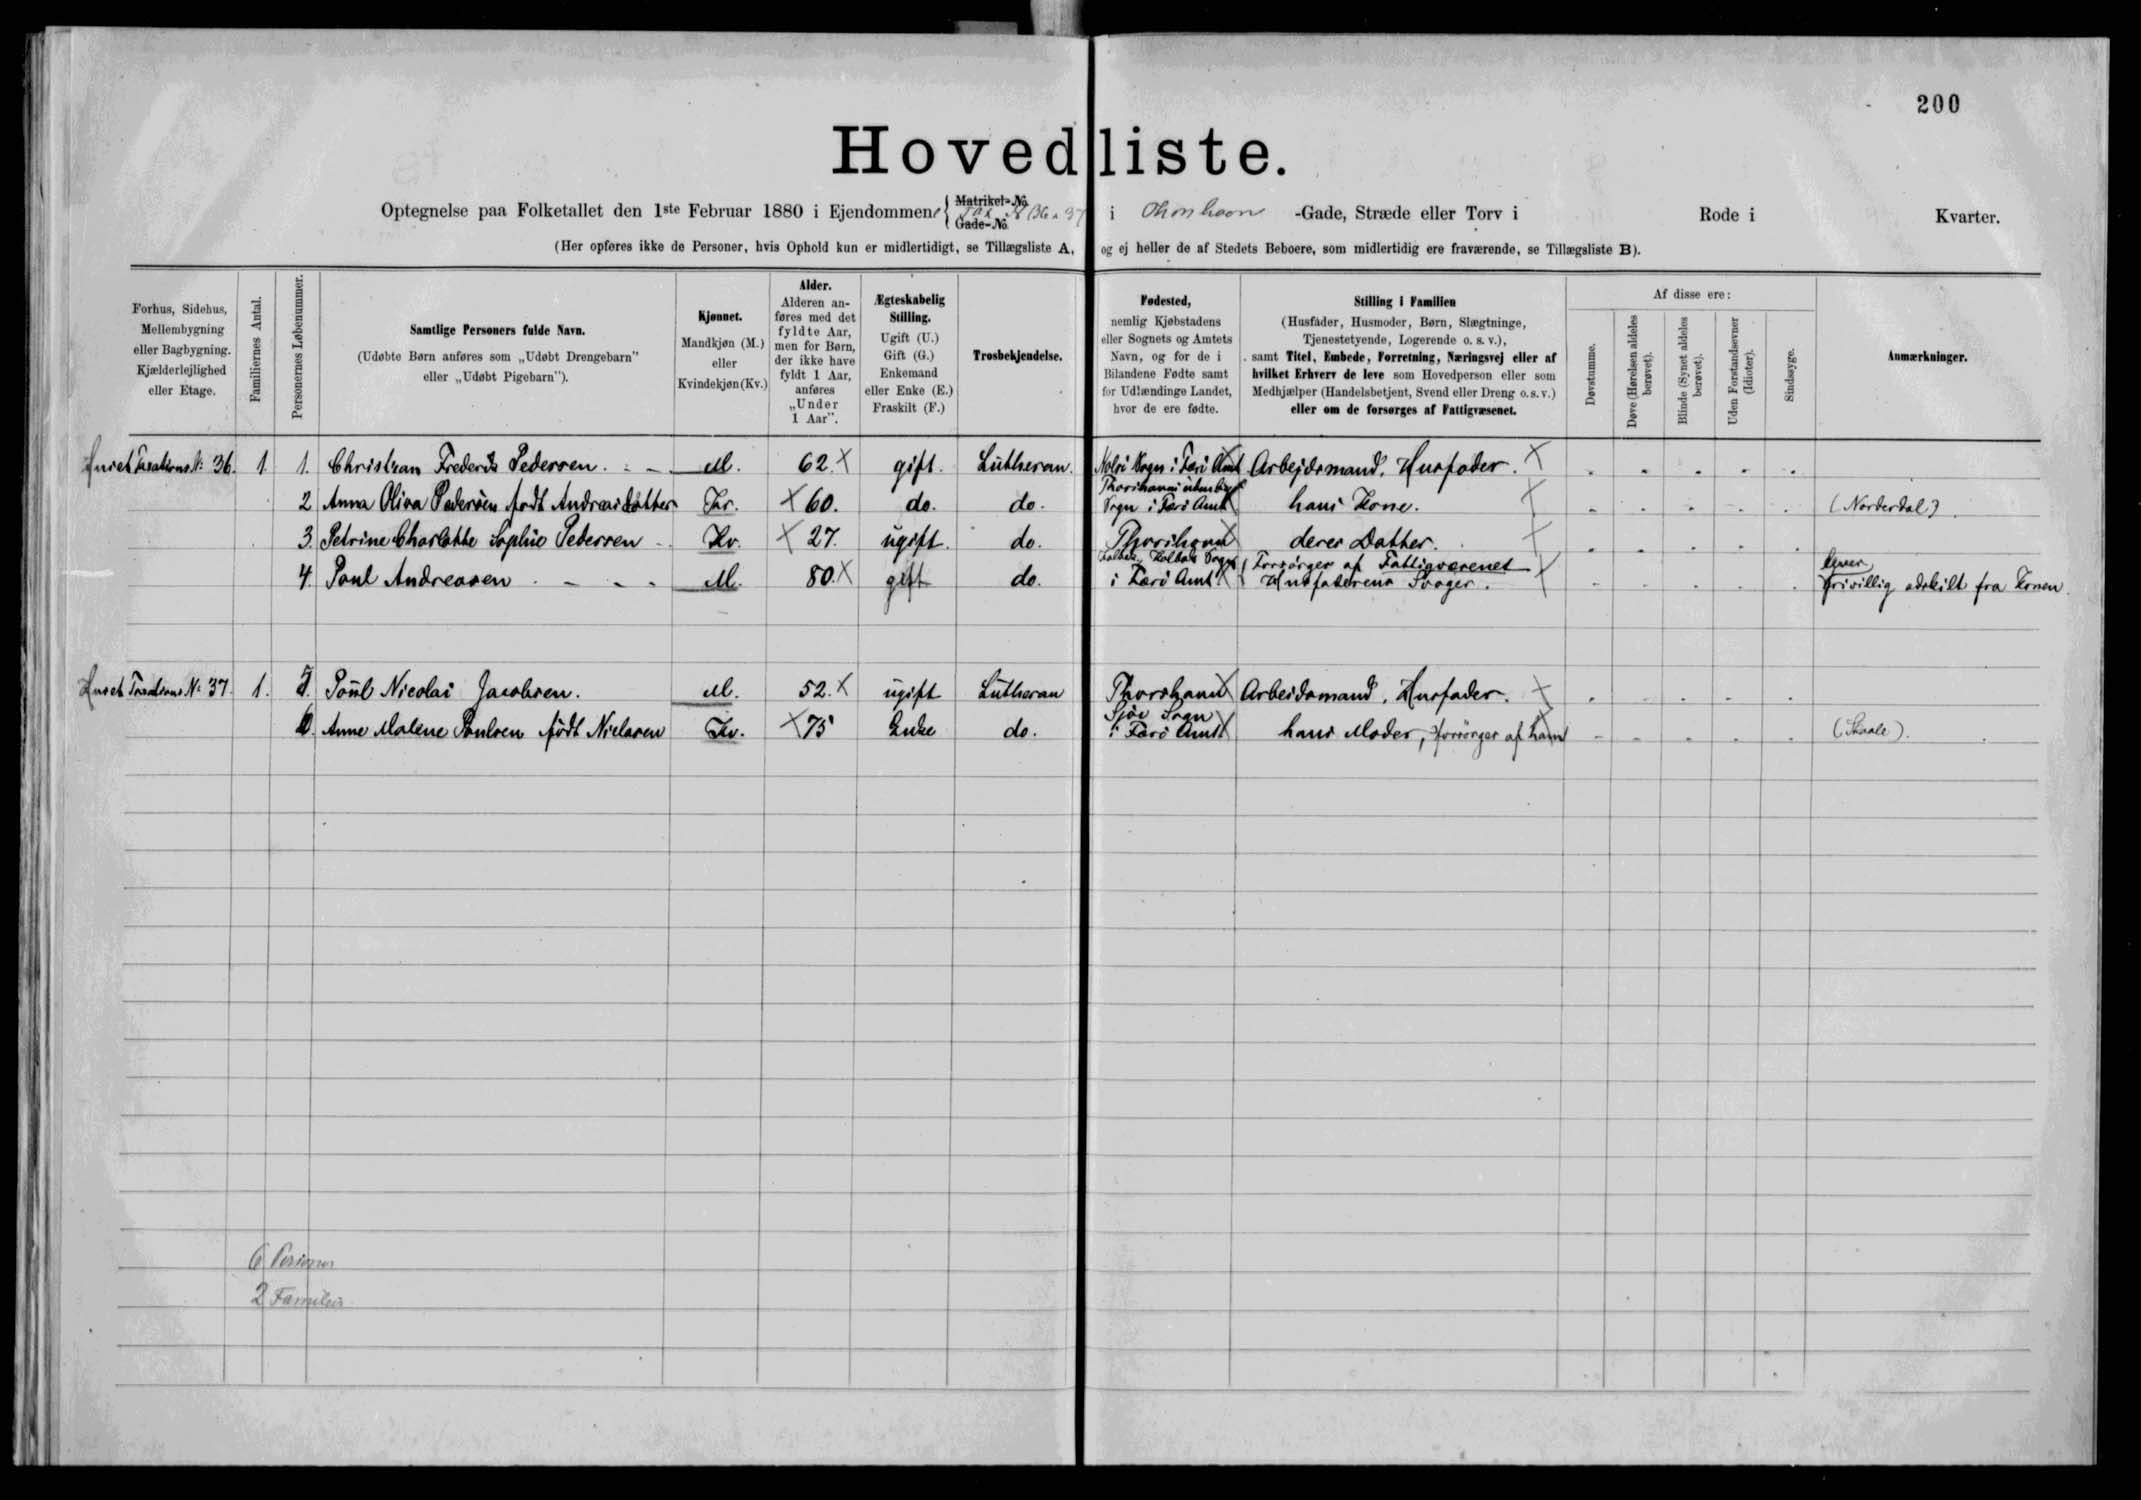 200
Hovedliste.
Optegnelse paa Folketallet den 1ste Februar 1880 i Ejendommene { Matrikel-No. Tax. No 36 & 37 Gade-No. i Thorshavn -Gade, Stræde eller Torv i Rode i Kvarter.
(Her opføres ikke de Personer, hvis Ophold kun er midlertidigt, se Tillægsliste A, og ej heller de af Stedets Beboere, som midlertidig ere fraværende, se Tillægsliste B).
Forhus, Sidehus, Mellembygning eller Bagbygning. Kjælderlejlighed eller Etage.
Familiernes Antal.
Personernes Løbenummer.
Samtlige Personers fulde Navn.
(Udøbte Børn anføres som „Udøbt Drengebarn"
eller „Udøbt Pigebarn").
Kjønnet.
Mandkjøn (M.)
eller
Kvindekjøn (Kv.)
Alder.
Alderen an-
føres med det
fyldte Aar,
men for Børn,
der ikke have
fyldt 1 Aar,
anføres
„Under
1 Aar".
Ægteskabelig
Stilling.
Ugift (U.)
Gift (G.)
Enkemand
eller Enke (E.)
Fraskilt (F.)
Trosbekjendelse.
Fødested,
nemlig Kjøbstadens
eller Sognets og Amtets
Navn, og for de i
Bilandene Fødte samt
for Udlændinge Landet,
hvor de ere fødte.
Stilling i Familien
(Husfader, Husmoder, Børn, Slægtninge,
Tjenestetyende, Logerende o. s. v.),
samt Titel, Embede, Forretning, Næringsvej eller af
hvilket Erhverv de leve som Hovedperson eller som
Medhjælper (Handelsbetjent, Svend eller Dreng o. s. v.)
eller om de forsørges af Fattigvæsenet.
Af disse ere:
Døvstumme.
Døve (Hørelsen aldeles berøvet).
Blinde (Synet aldeles berøvet).
Uden Forstandsevner (Idioter).
Sindssyge.
Anmærkninger.
Huset Taxations No 36. 1. 1. Christian Frederik Pedersen. M. 62. X gift. Lutheran. Nolsö Sogn i Færö Amt Arbejdsmand, Husfader. X
2 Anna Oliva Pedersen født Andreasdatter Kv. X 60. do. do. Thorshavns udenbys Sogn i Færö Amt hans Kone. X (Norderdal).
3. Petrine Charlotte Sophie Pedersen Kv. X 27. ugift. do. Thorshavn deres Datter. X
4. Poul Andreasen M. 80. X gift do. Kolbak Sogn i Færö Amt Forsørges af Fattigvæsenet Husfaderens Svoger. X lever frivillig adskilt fra Konen
Huset Taxations No 37. 1. 5. Poul Nicolai Jacobsen. M. 52. X ugift Lutheran Thorshavn Arbejdsmand, Husfader. X
6. Anne Malene Poulsen født Nielsen Kv. X 75 Enke do. Sjöv Sogn i Færö Amt hans Moder, forsørges af ham (Skaale).
6 Personer
2 Familier